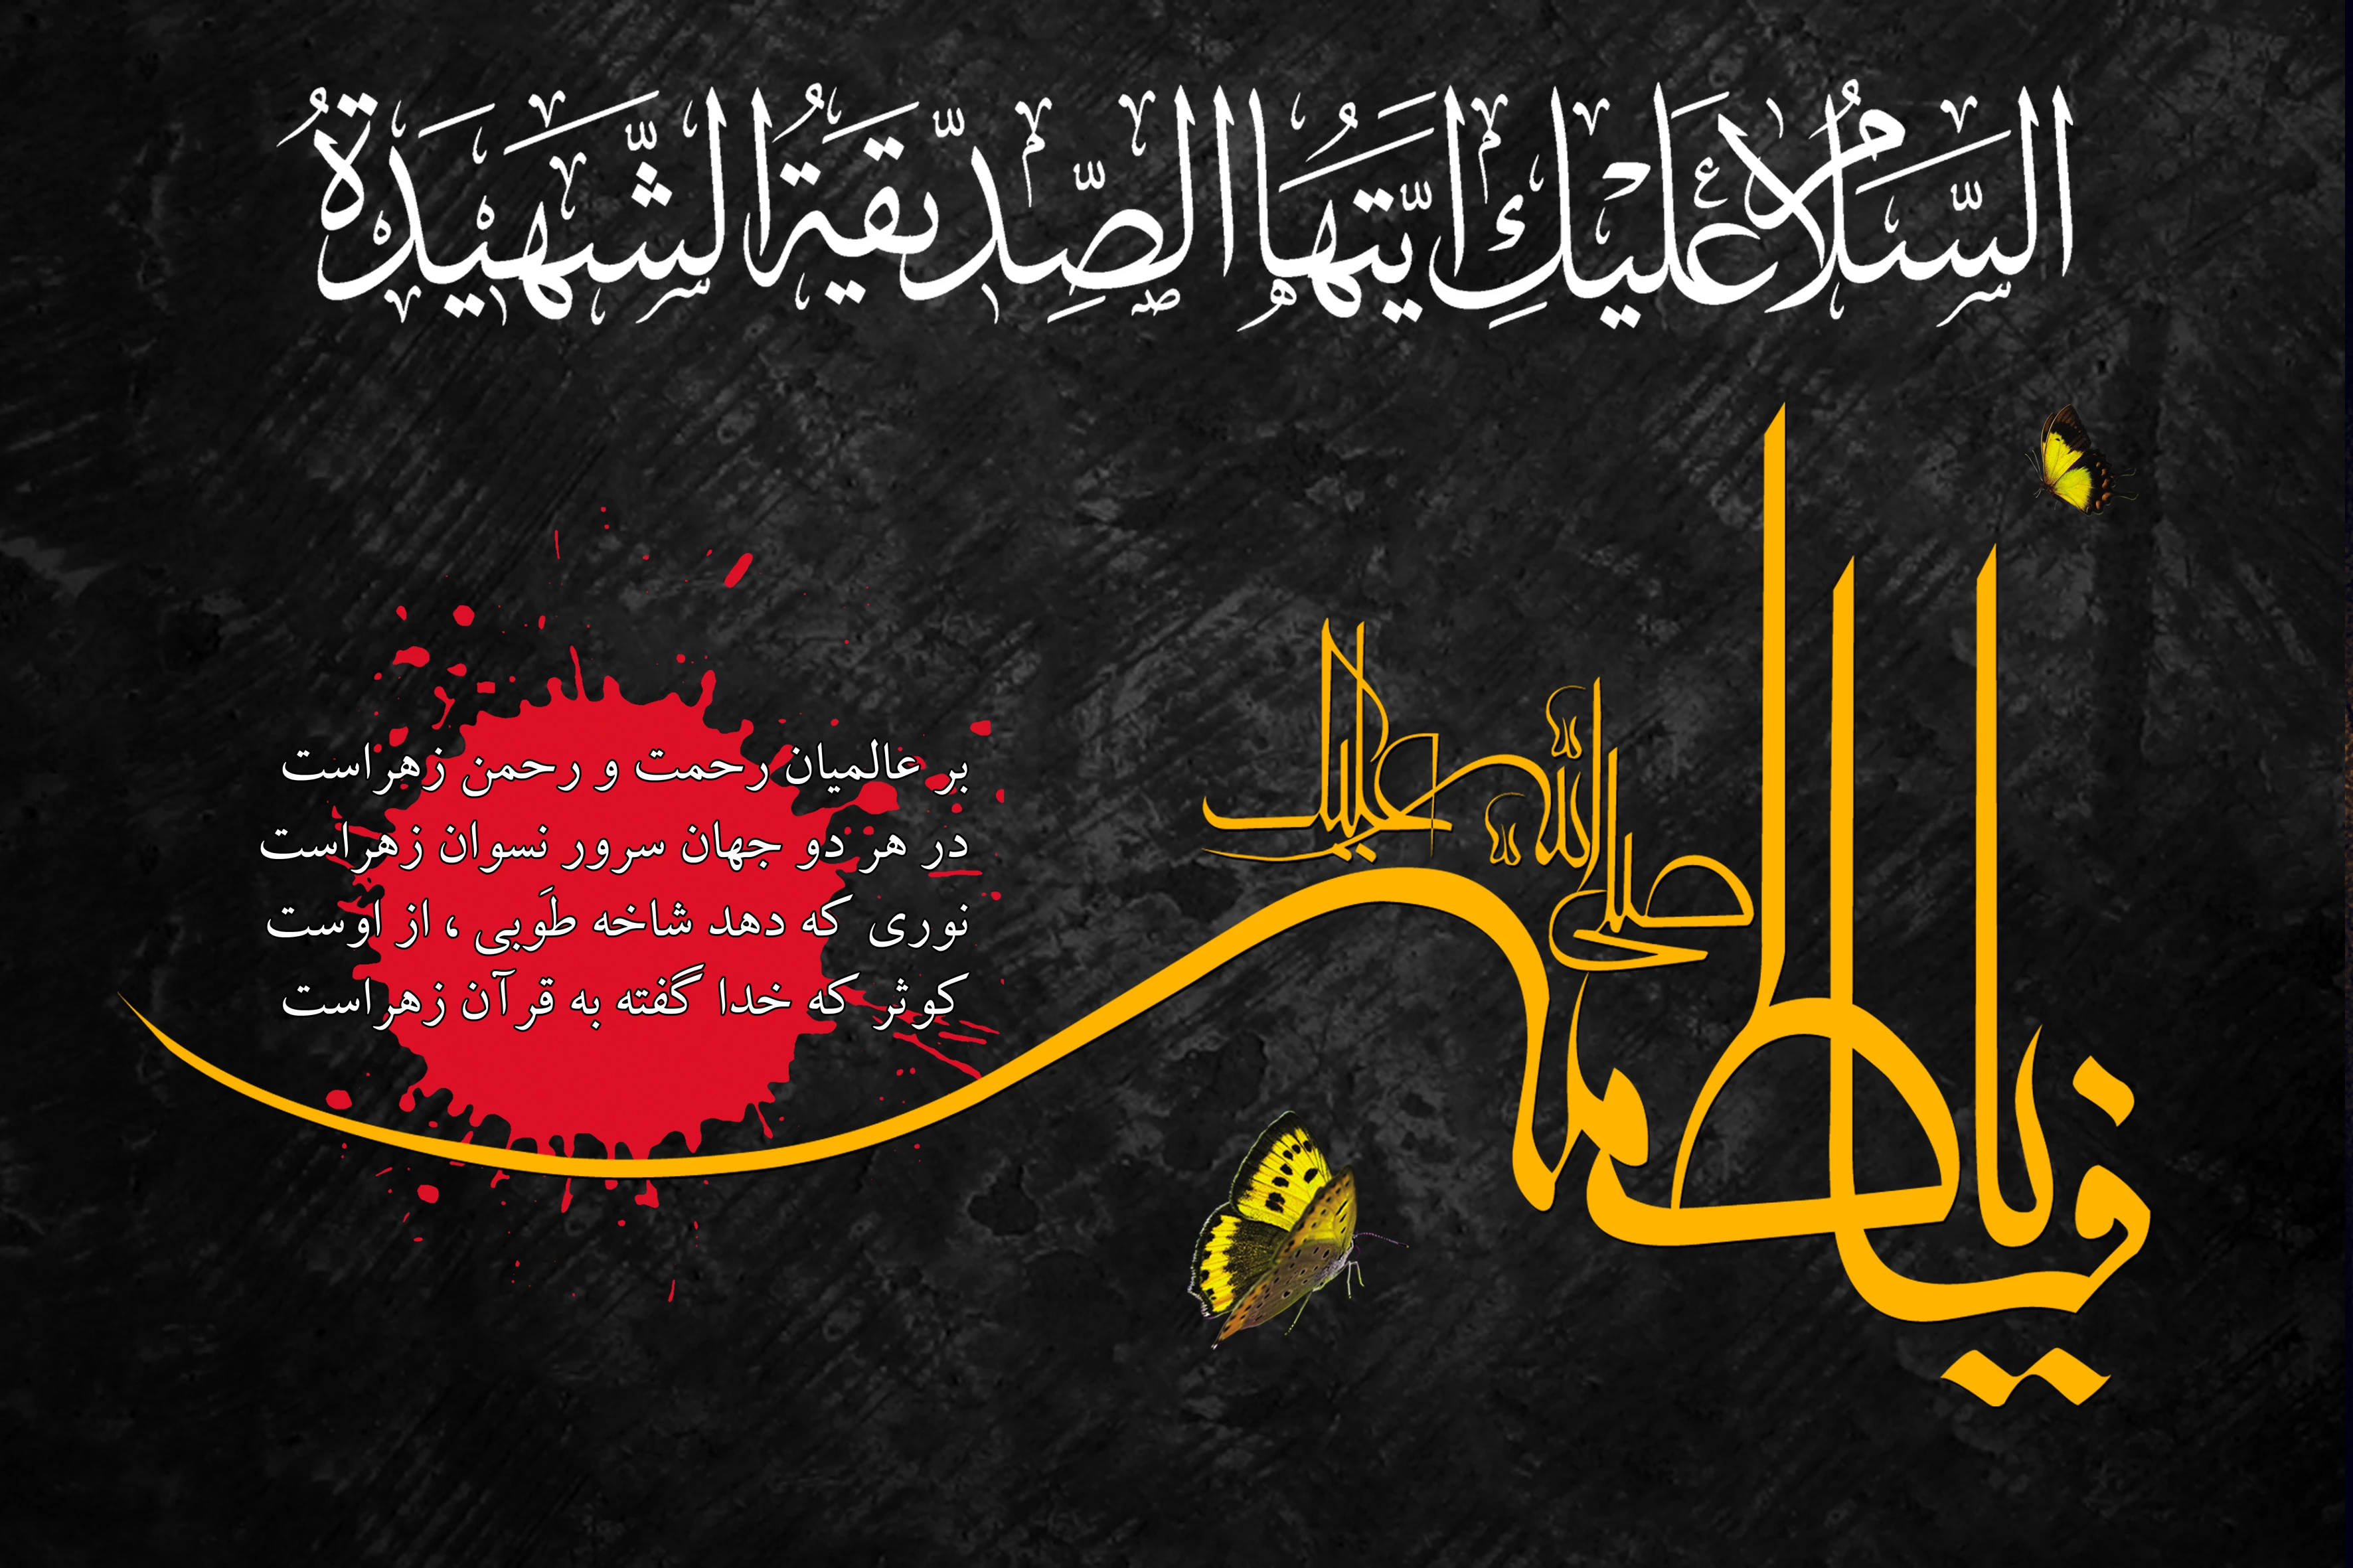 السَّلَامُ عَلَيْكِ اَيَّتُهَا الصِّدّيقَةُ الشَّهيدَةُ
يا فاطمه
صلی الله علیک
بر عالمیان رحمت و رحمن زهراست
در هر دو جهان سرور نسوان زهراست
نوری که دهد شاخه طَوبی ، از اوست
کوثر که خدا گفته به قرآن زهراست